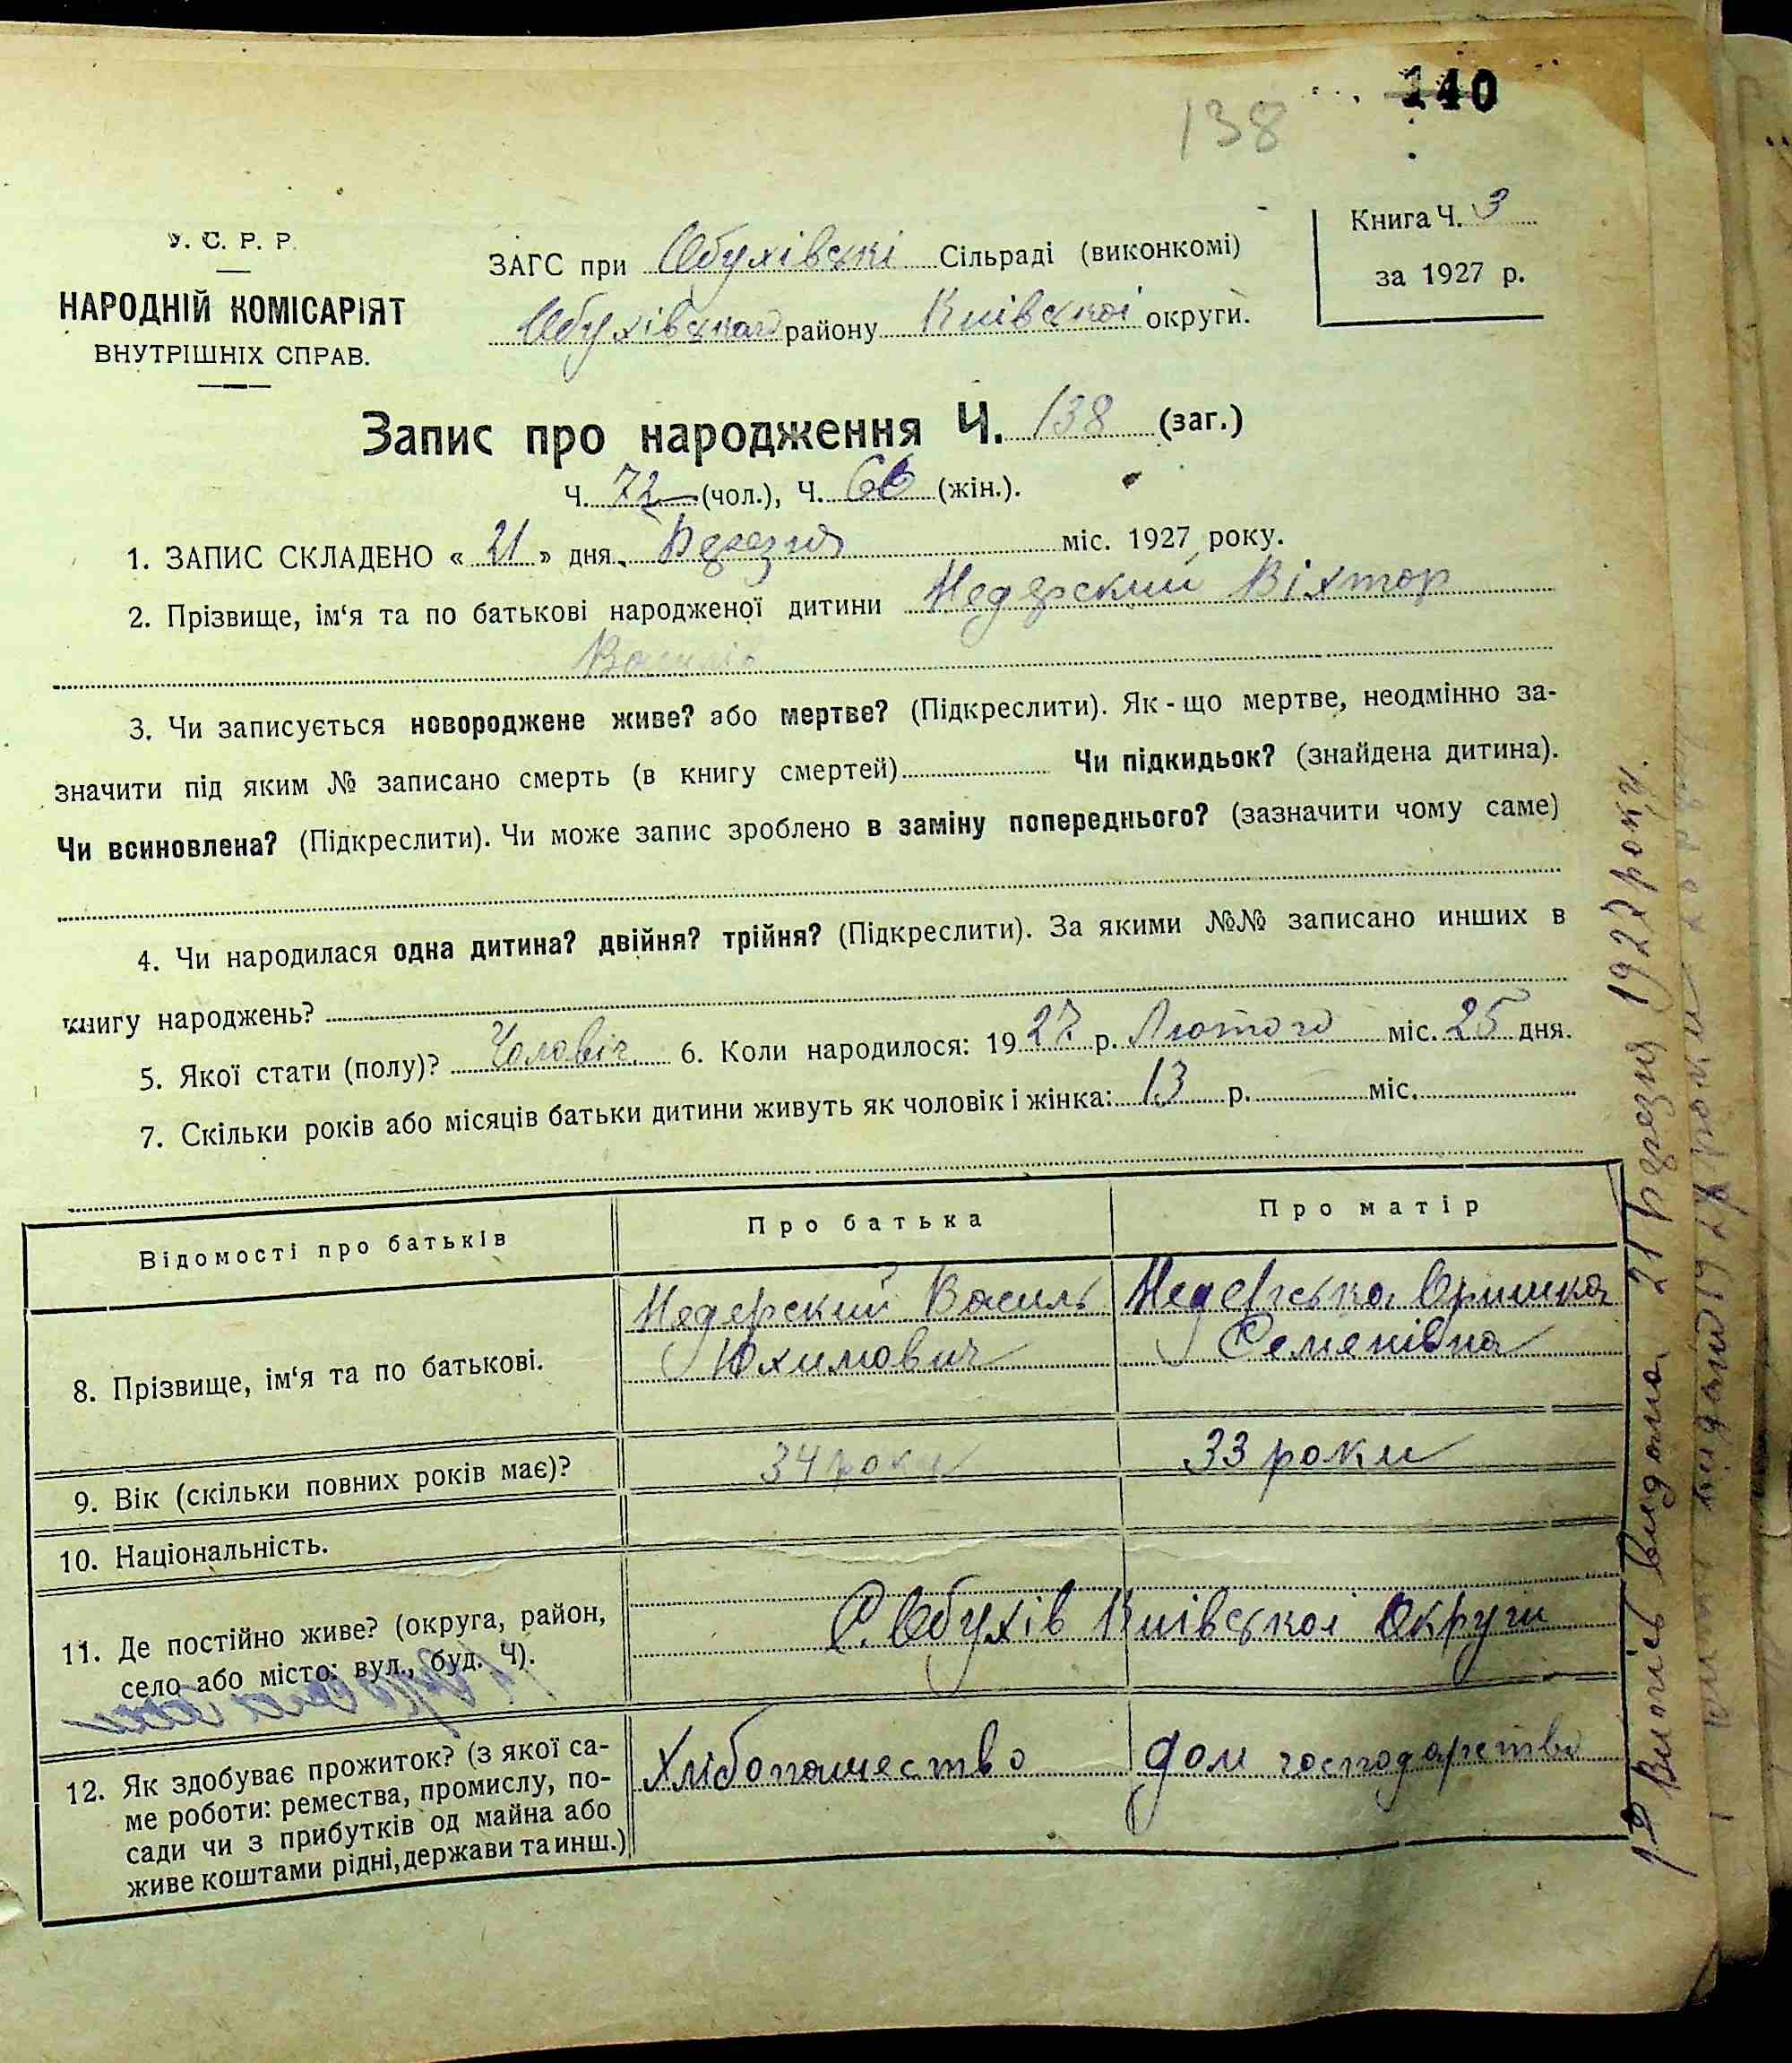 140
138
У. С. Р. Р.
НАРОДНІЙ КОМІСАРІЯТ
ВНУТРІШНІХ СПРАВ.
ЗАГС при Обухівські Сільраді (виконкомі)
Обухівского району Київскої округи.
Книга Ч. 3
за 1927 р.
Запис про народження Ч. 138 (заг.)
Ч. 72 (чол.), Ч. 66 (жін.).
1. ЗАПИС СКЛАДЕНО « 21 » дня Березня міс. 1927 року.
2. Прізвище, ім‘я та по батькові народженої дитини Недерский Віктор
Василів
3. Чи записується новороджене живе? або мертве? (Підкреслити). Як-що мертве, неодмінно за-
значити під яким № записано смерть (в книгу смертей) Чи підкидьок? (знайдена дитина).
Чи всиновлена? (Підкреслити). Чи може запис зроблено в заміну попереднього? (зазначити чому саме)
4. Чи народилася одна дитина? двійня? трійня? (Підкреслити). За якими №№ записано инших в
книгу народжень?
5. Якої стати (полу)? Чоловіч. 6. Коли народилося: 1927 р. Лютого міс. 25 дня.
7. Скільки років або місяців батьки дитини живуть як чоловік і жінка: 13 р. міс.
Відомості про батьків
Про батька
Про матір
8. Прізвище, ім‘я та по батькові.
Недерский Василь
Юхимович
Недерська Оришка
Семенівна
9. Вік (скільки повних років має)?
34 роки
33 роки
10. Національність.
11. Де постійно живе? (округа, район,
село або місто: вул., буд. Ч).
С. Обухів Київської Округи
12. Як здобуває прожиток? (з якої са-
ме роботи: ремества, промислу, по-
сади чи з прибутків од майна або
живе коштами рідні, держави та инш.)
Хлібопашество
Дом господарство
Витпісь видана 21 Березня 1927 року.